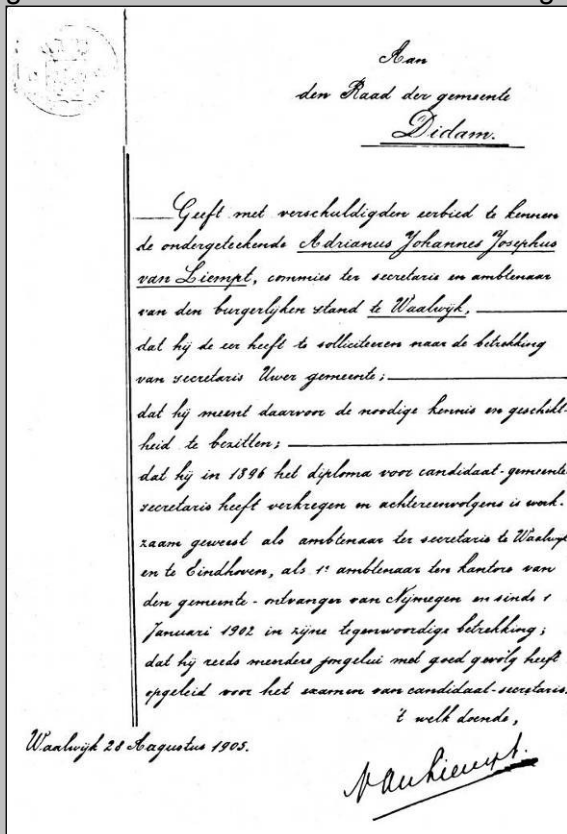 Aan
den Raad der gemeente
Didam.
Geeft met verschuldigden eerbied te kennen
de ondergeteekende Adrianus Johannes Josephus
van Liempt, commies ter secretarie en ambtenaar
van den burgerlyken stand te Waalwyk,
dat hy de eer heeft te solliciteeren naar de betrekking
van secretaris Uwer gemeente;
dat hy meent daarvoor de noodige kennis en geschikt-
heid te bezitten;
dat hy in 1896 het diploma voor candidaat-gemeente
secretaris heeft verkregen en achtereenvolgens is werk-
zaam geweest als ambtenaar ter secretarie te Waalwyk
en te Eindhoven, als 1e ambtenaar ten kantore van
den gemeente-ontvanger van Nymegen en sinds 1
Januari 1902 in zyne tegenwoordige betrekking;
dat hy reeds meerdere jongelui met goed gevolg heeft
opgeleid voor het examen van candidaat-secretaris.
't welk doende,
Waalwyk 28 Augustus 1905.
van Liempt.